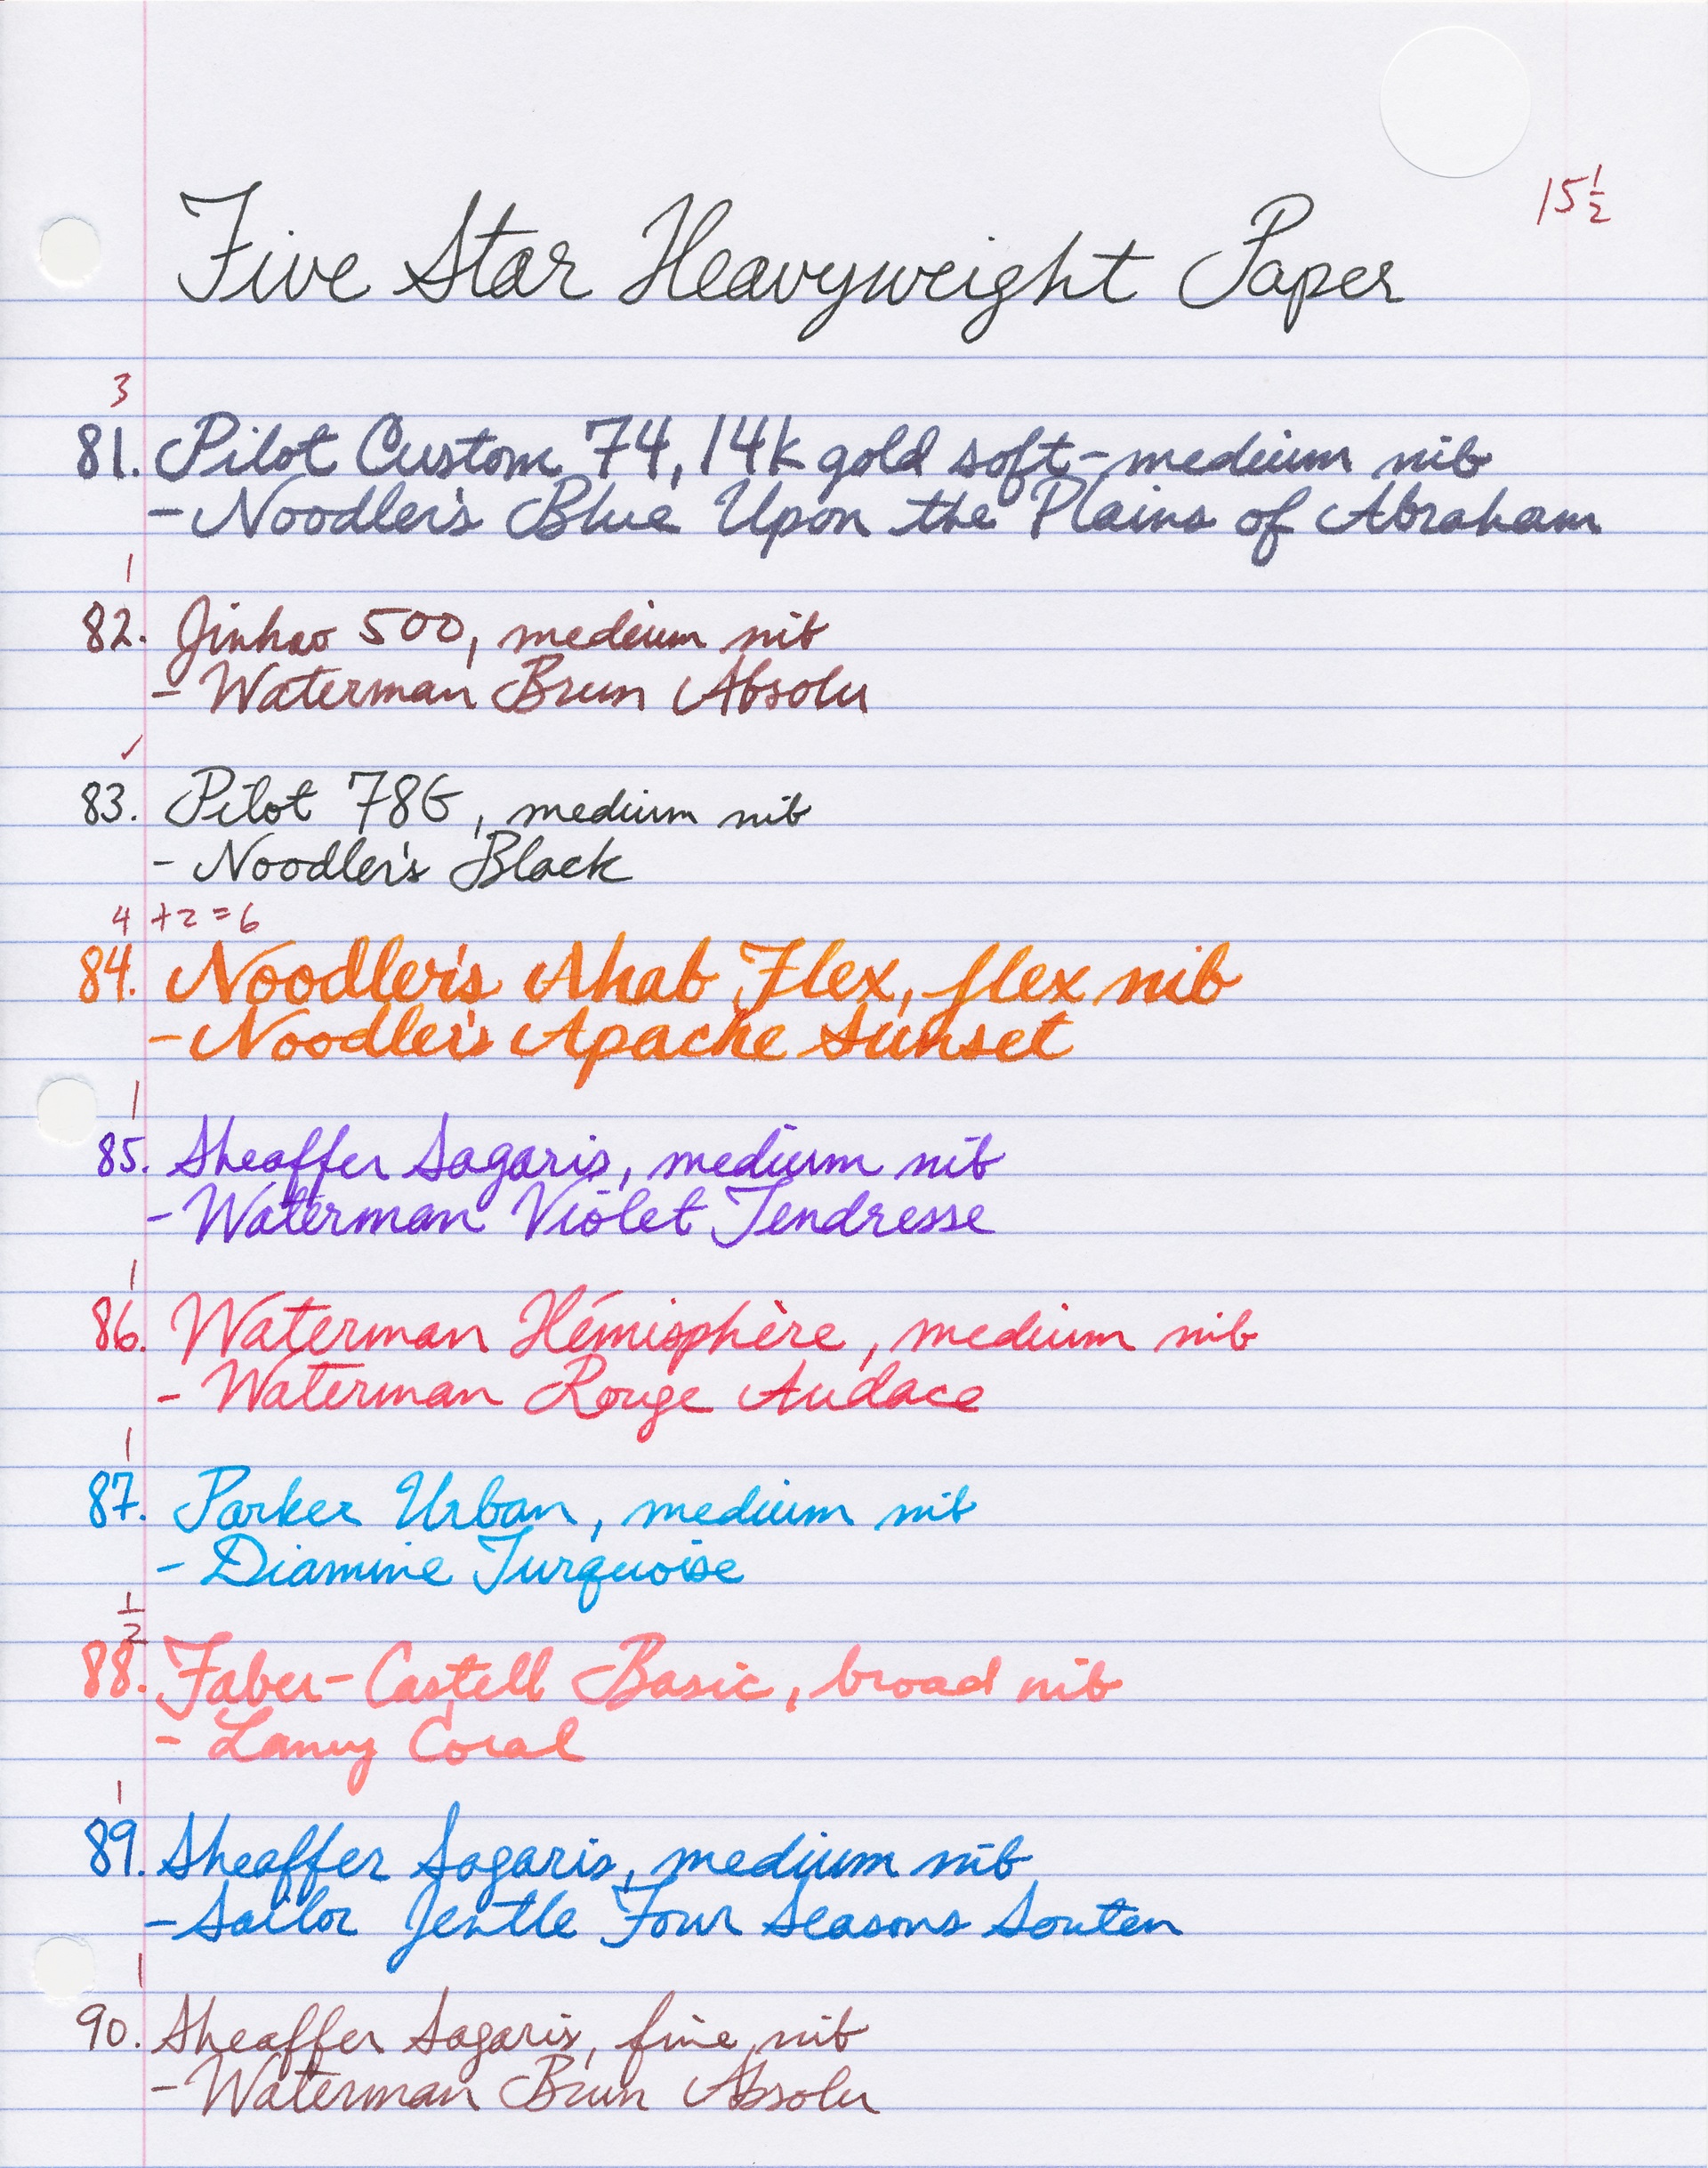 15 1/2
Five Star Heavyweight Paper
3
81. Pilot Custom 74, 14k gold soft-medium nib
- Noodler's Blue Upon the Plains of Abraham
1
82. Jinhao 500, medium nib
- Waterman Brun Absolu
✓
83. Pilot 78G, medium nib
- Noodler's Black
4 +2=6
84. Noodler's Ahab Flex, flex nib
- Noodler's Apache Sunset
1
85. Sheaffer Sagaris, medium nib
- Waterman Violet Tendresse
1
86. Waterman Hémisphère, medium nib
- Waterman Rouge Audace
1
87. Parker Urban, medium nib
- Diamine Turquoise
1/2
88. Faber-Castell Basic, broad nib
- Lamy Coral
1
89. Sheaffer Sagaris, medium nib
- Sailor Jentle Four Seasons Souten
1
90. Sheaffer Sagaris, fine nib
- Waterman Brun Absolu